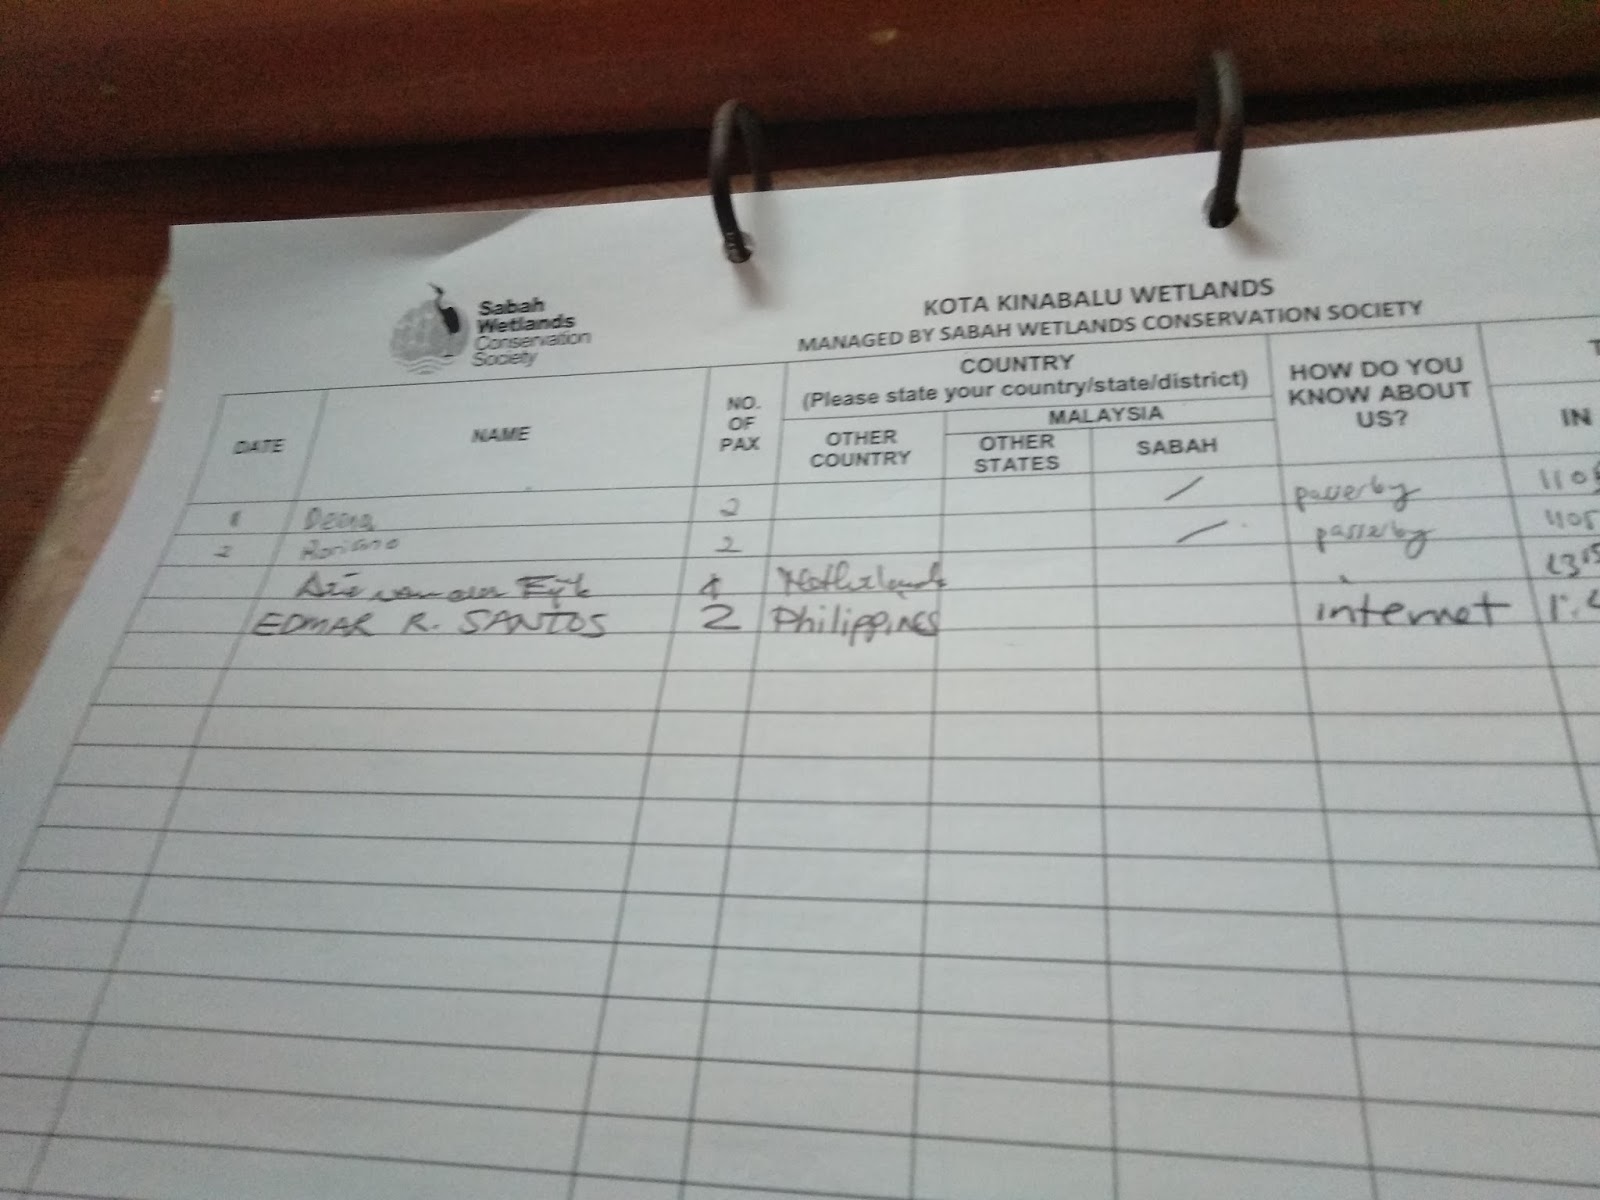 Sabah
Wetlands
Conservation
Society
KOTA KINABALU WETLANDS
MANAGED BY SABAH WETLANDS CONSERVATION SOCIETY
DATE NAME NO. OF PAX COUNTRY HOW DO YOU KNOW ABOUT US?
(Please state your country/state/district)
OTHER COUNTRY MALAYSIA IN
OTHER STATES SABAH
1 2 / passerby
2 2 / passerby 1105
van der Netherlands
EDMAR R. SANTOS 2 PhilippiNES internet